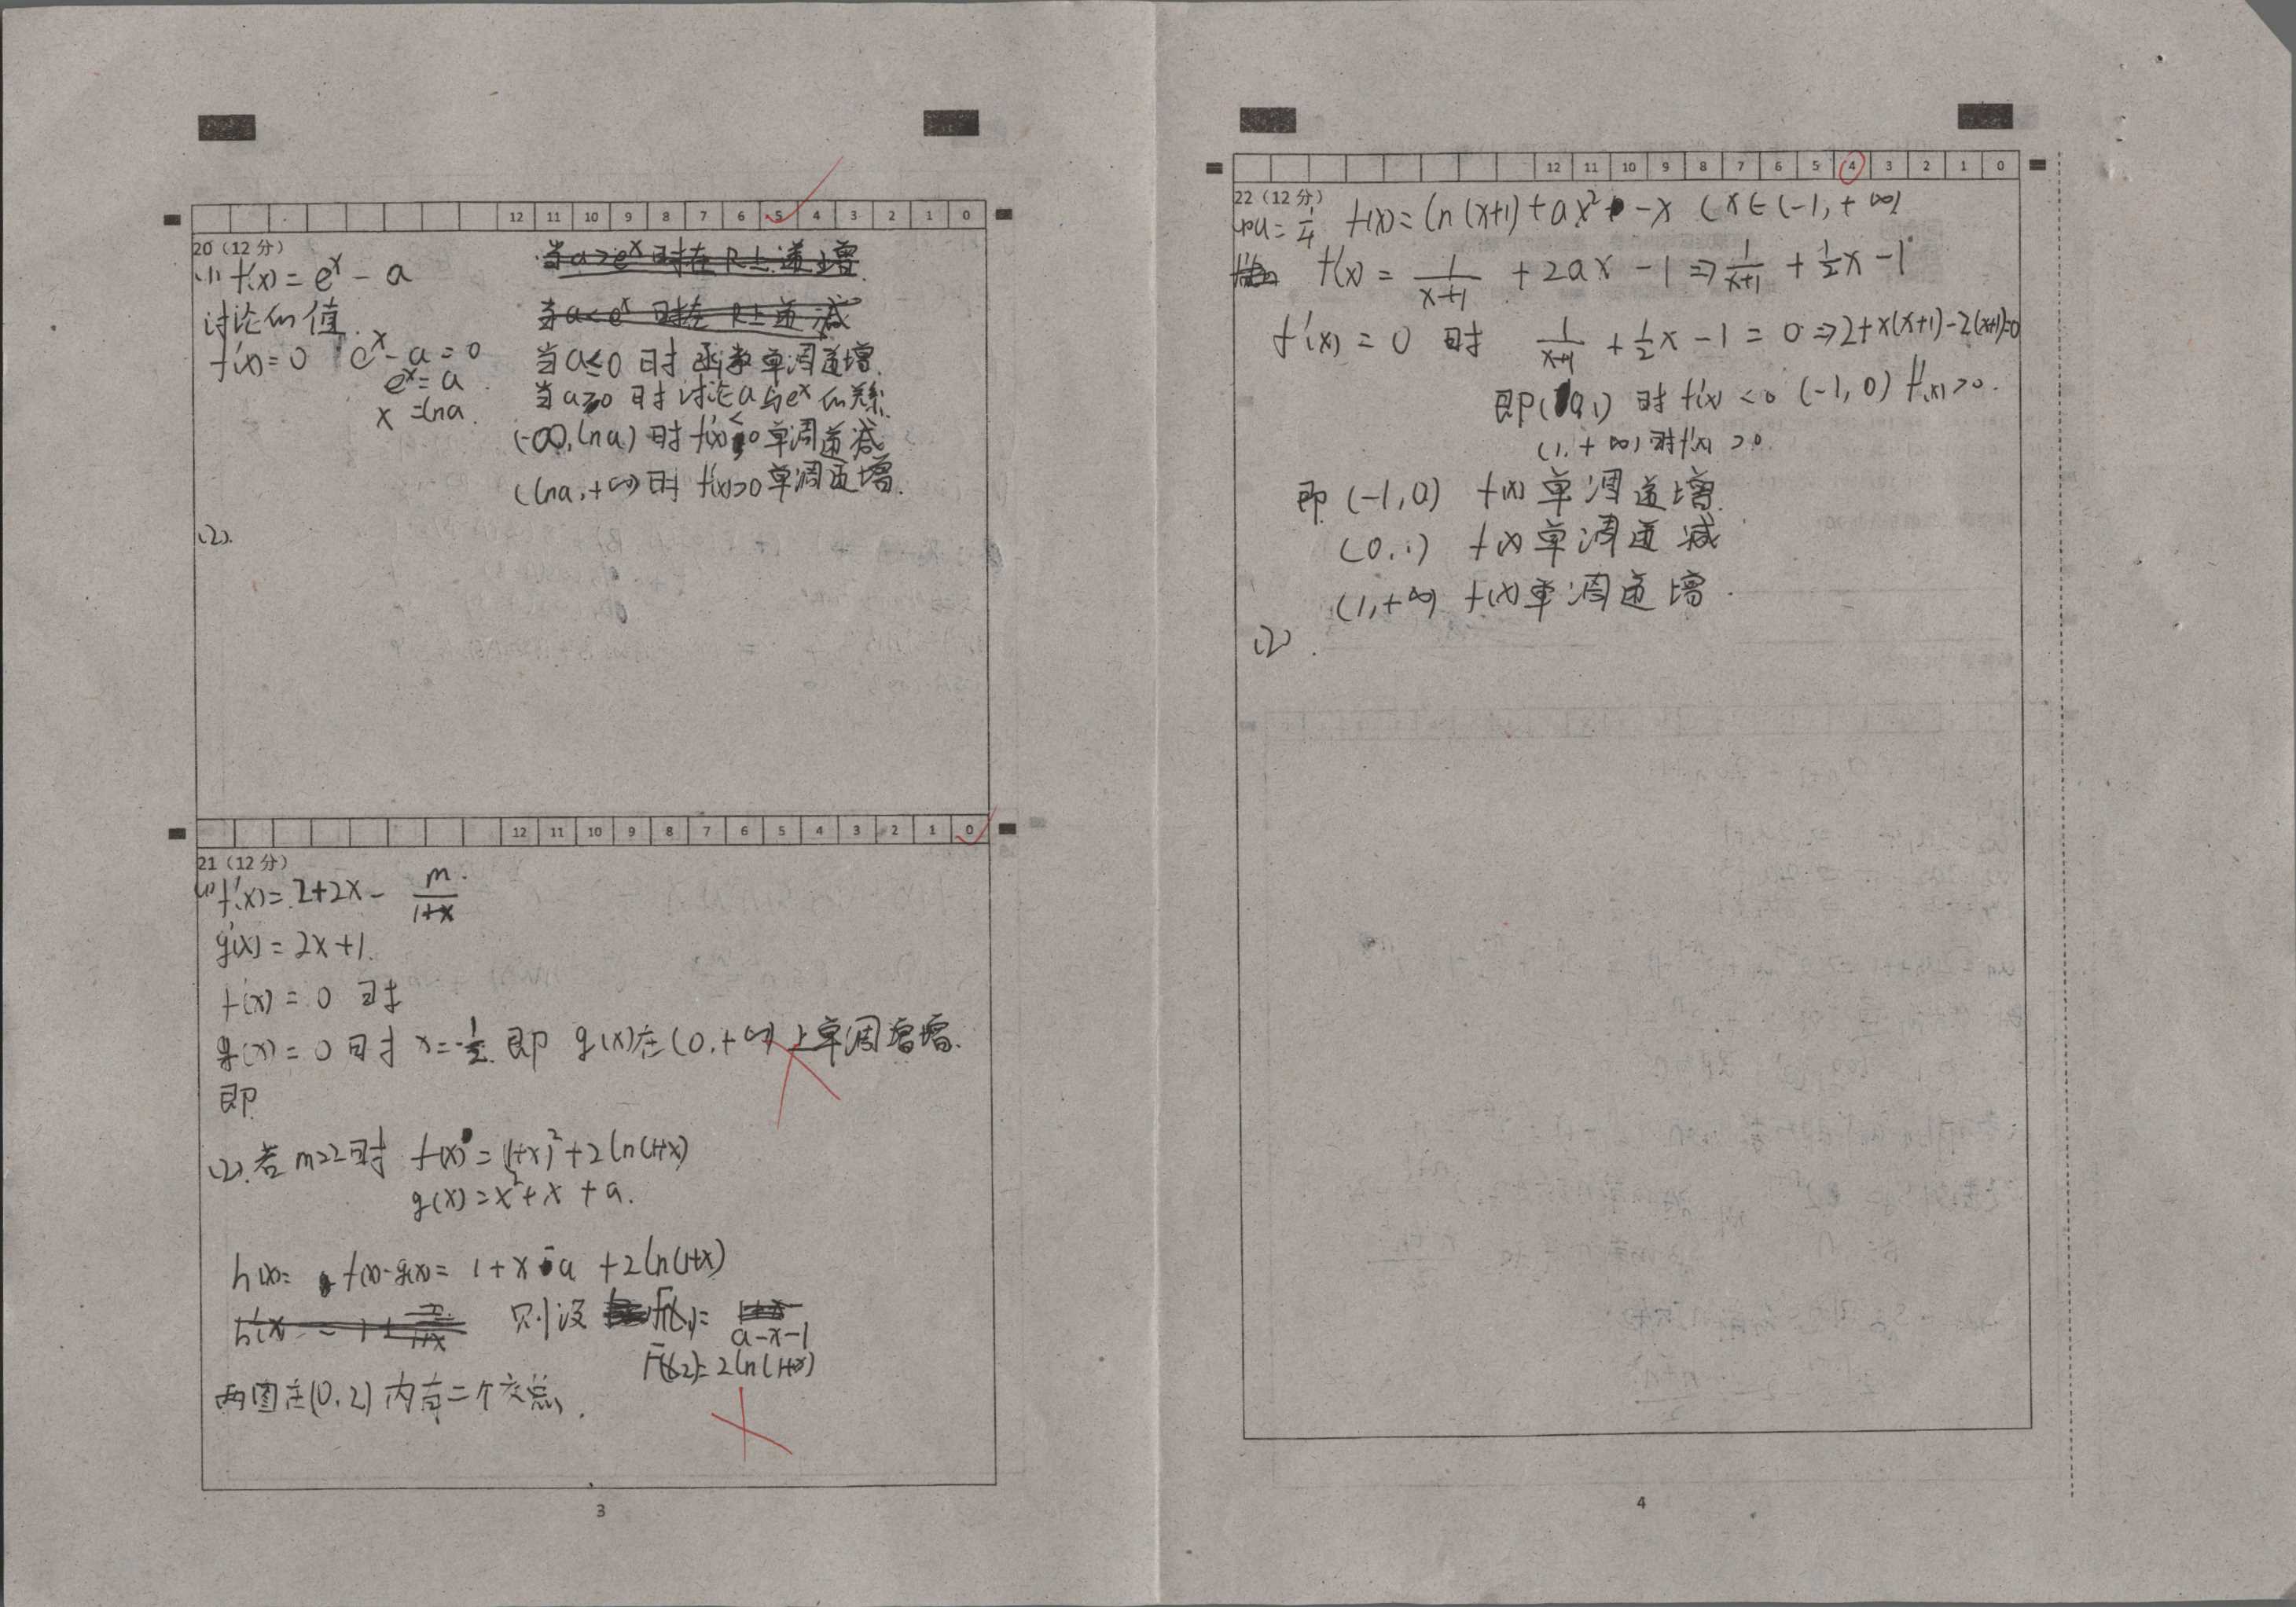 12 11 10 9 8 7 6 5 4 3 2 1 0
20（12 分）
(1) f'(x) = e^x - a
讨论a的值
f'(x) = 0 e^x - a = 0
e^x = a
x = lna.
当a>e^x 时在R上递增
当a<e^x 时在R上递减
当a≤0 时函数单调递增.
当a>0 时讨论a与e^x的关系.
(-∞, lna) 时 f'(x)<0 单调递减
(lna, +∞) 时 f'(x)>0 单调递增.
(2).
12 11 10 9 8 7 6 5 4 3 2 1 0
21（12 分）
(1) f'(x) = 2+2x - m/(1+x)
g'(x) = 2x+1.
f'(x) = 0 时
g'(x) = 0 时 x = -1/2 即 g(x)在(0,+∞)上单调增增.
即
(2).若m=2时 f(x) = (1+x)²+2ln(1+x)
g(x) = x²+x+a.
h(x)= f(x)-g(x)= 1+x-a +2ln(1+x)
则设 F(x₁)= a-x-1
F(x₂)= 2ln(1+x)
两图在(0,2)内有二个交点.
3
12 11 10 9 8 7 6 5 4 3 2 1 0
22（12 分）
(1) a = 1/4 f(x) = ln(x+1)+ax² -x (x∈(-1,+∞)
f'(x) = 1/(x+1) + 2ax - 1 ⇒ 1/(x+1) + 1/2x - 1
f'(x) = 0 时 1/(x+1) + 1/2x - 1 = 0 ⇒ 2+x(x+1)-2(x+1)=0
即(0,1) 时 f'(x) <0 (-1,0) f'(x)>0.
(1,+∞)时f'(x) >0.
即 (-1,0) f(x) 单调递增.
(0,1) f(x) 单调递减
(1,+∞) f(x) 单调递增.
(2).
4